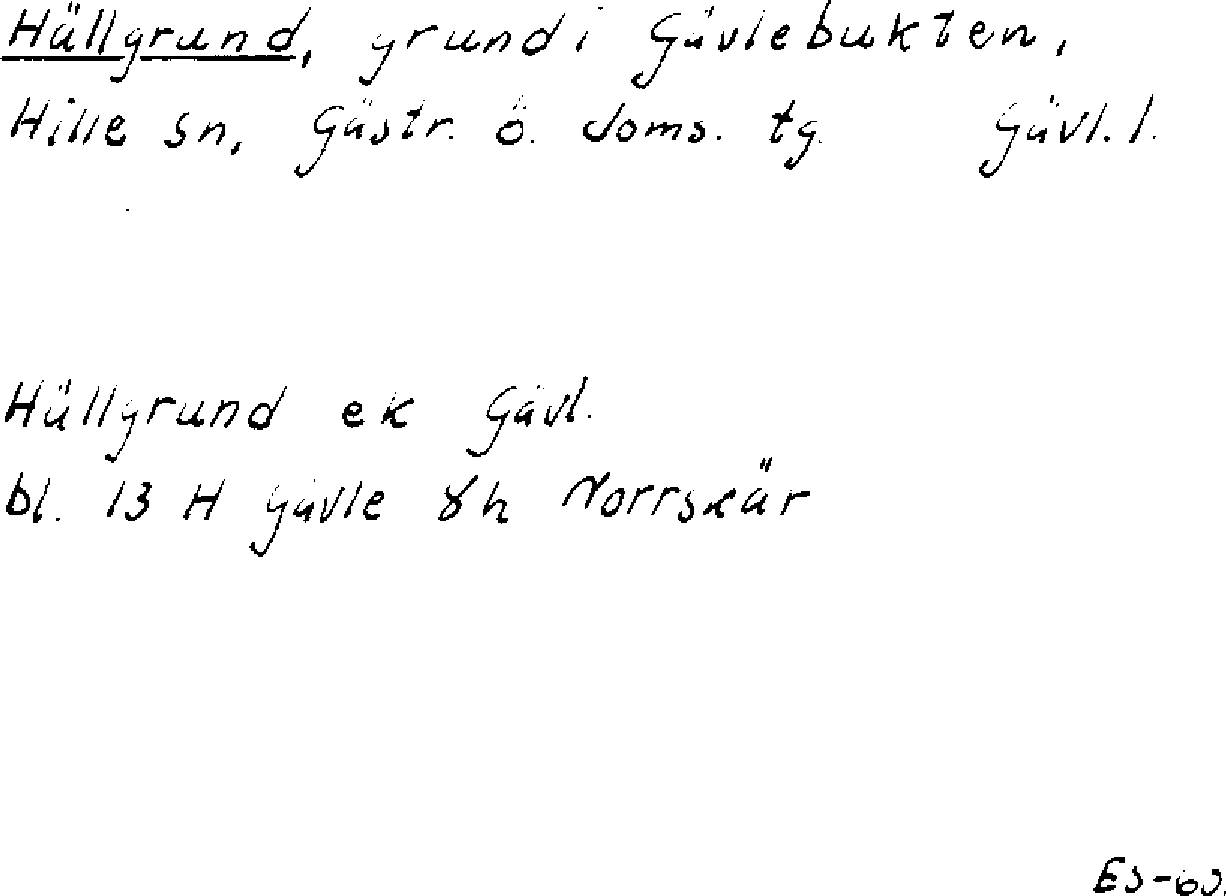 Hällgrund, grund i Gävlebukten,
Hille sn, Gästr. ö. doms. tg. Gävl. l.
Hällgrund ek Gävl.
bl. 13 H Gävle 8h Norrskär